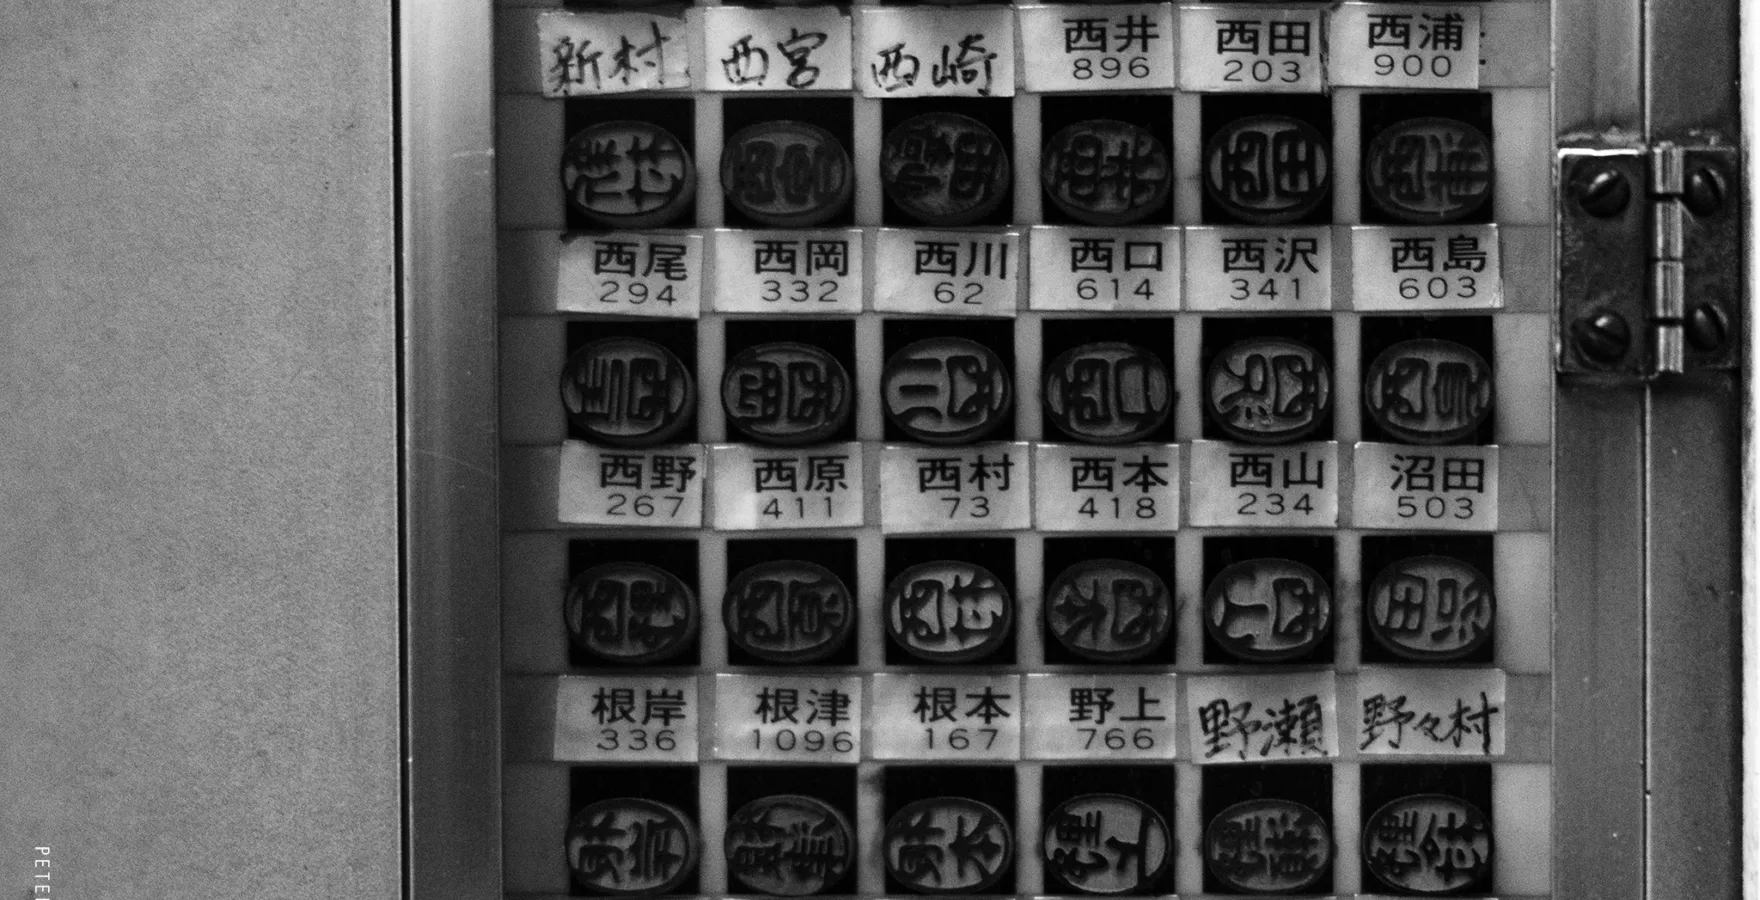 新村 西宮 西崎 西井 西田 西浦
896 203 900
西尾 西岡 西川 西口 西沢 西島
294 332 62 614 341 603
西野 西原 西村 西本 西山 沼田
267 411 73 418 234 503
根岸 根津 根本 野上 野瀬 野々村
336 1096 167 766
PETE